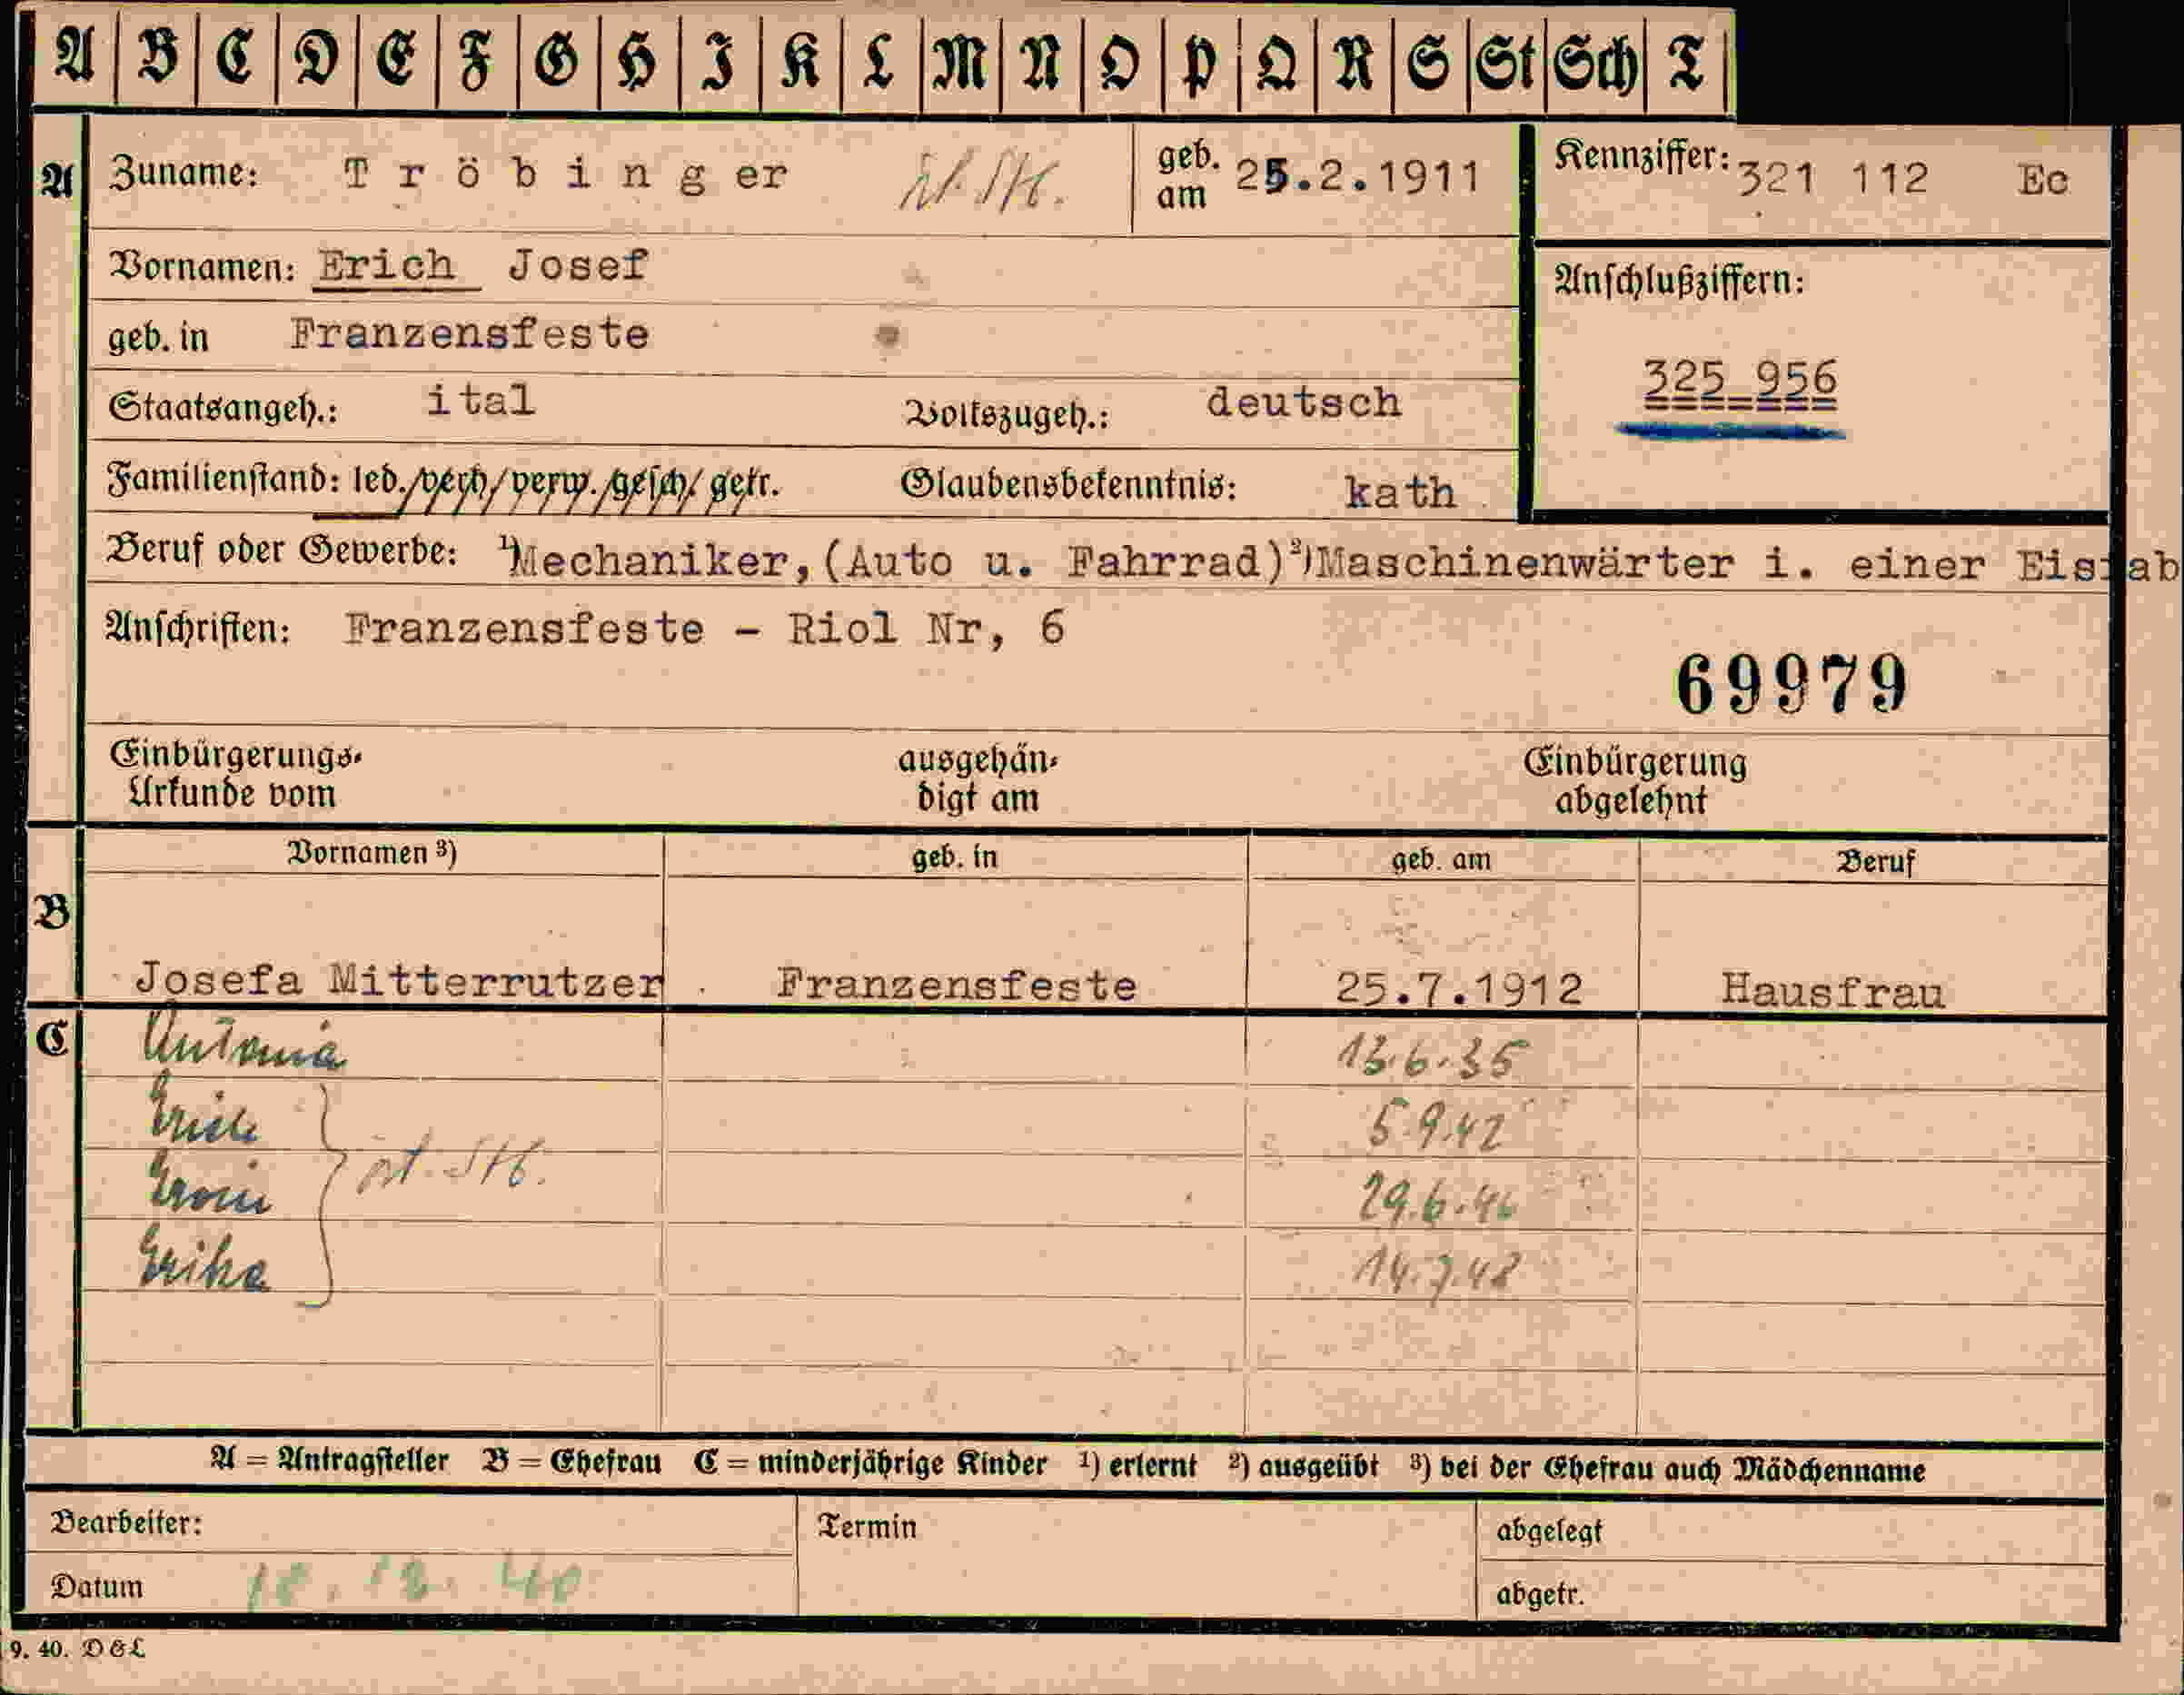 A B C D E F G H I K L M N O P Q R S St Sch T
A Zuname: Tröbinger geb. am 25.2.1911 Kennziffer: 321 112 Ec
Vornamen: Erich Josef Anschlußziffern:
geb. in Franzensfeste 325 956
Staatsangeh.: ital Volkszugeh.: deutsch
Familienstand: led./verh/verw./gesch/getr. Glaubensbekenntnis: kath
Beruf oder Gewerbe: ¹)Mechaniker,(Auto u. Fahrrad)²)Maschinenwärter i. einer Eisfab
Anschriften: Franzensfeste - Riol Nr, 6
69979
Einbürgerungs- Urkunde vom ausgehän- digt am Einbürgerung abgelehnt
Vornamen ³) geb. in geb. am Beruf
B
Josefa Mitterrutzer Franzensfeste 25.7.1912 Hausfrau
C Antonia 13.6.35
Erich 5.9.42
29.6.46
Erika 14.7.48
A = Antragsteller B = Ehefrau C = minderjährige Kinder ¹) erlernt ²) ausgeübt ³) bei der Ehefrau auch Mädchenname
Bearbeiter: Termin abgelegt
Datum 18.12.40 abgetr.
9. 40. D&L